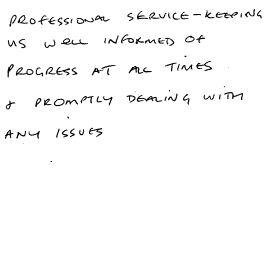 PROFESSIONAL SERVICE-KEEPING
US WELL INFORMED OF
PROGRESS AT ALL TIMES
& PROMPTLY DEALING WITH
ANY ISSUES